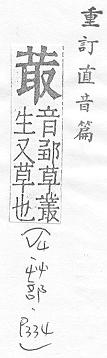 重訂直音篇
菆
音鄒草叢
生又草也
(V4·艸部·P334)